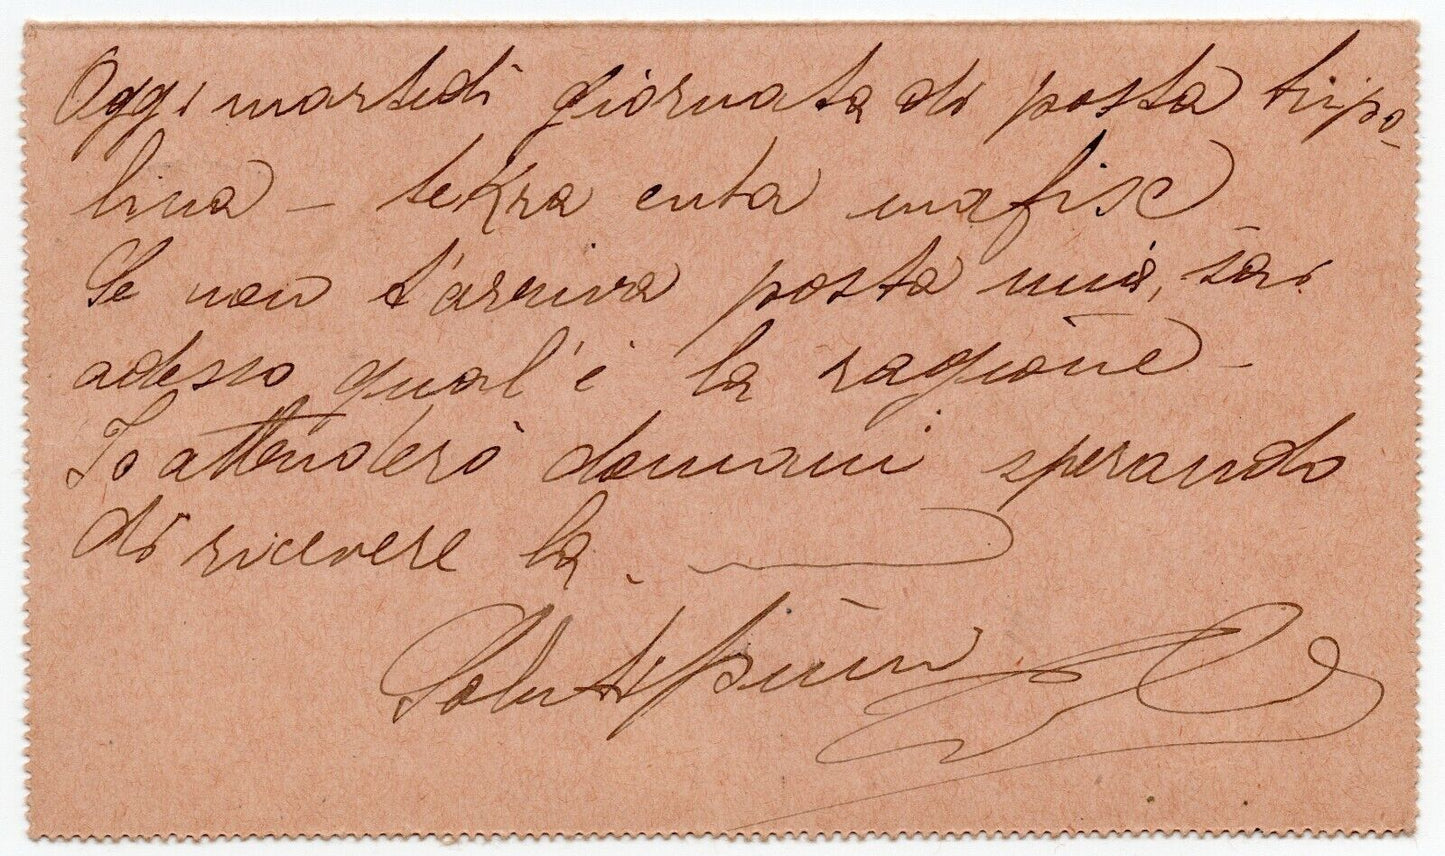 Oggi martedì giornata di posta tripo-
lina – tekra enta mafisc
Se non t'arriva posta mia, sai
adesso qual'è la ragione –
Io attenderò domani sperando
di ricevere la.
Saluti